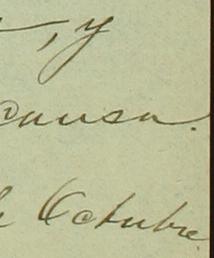 , y
causa.
Octubre